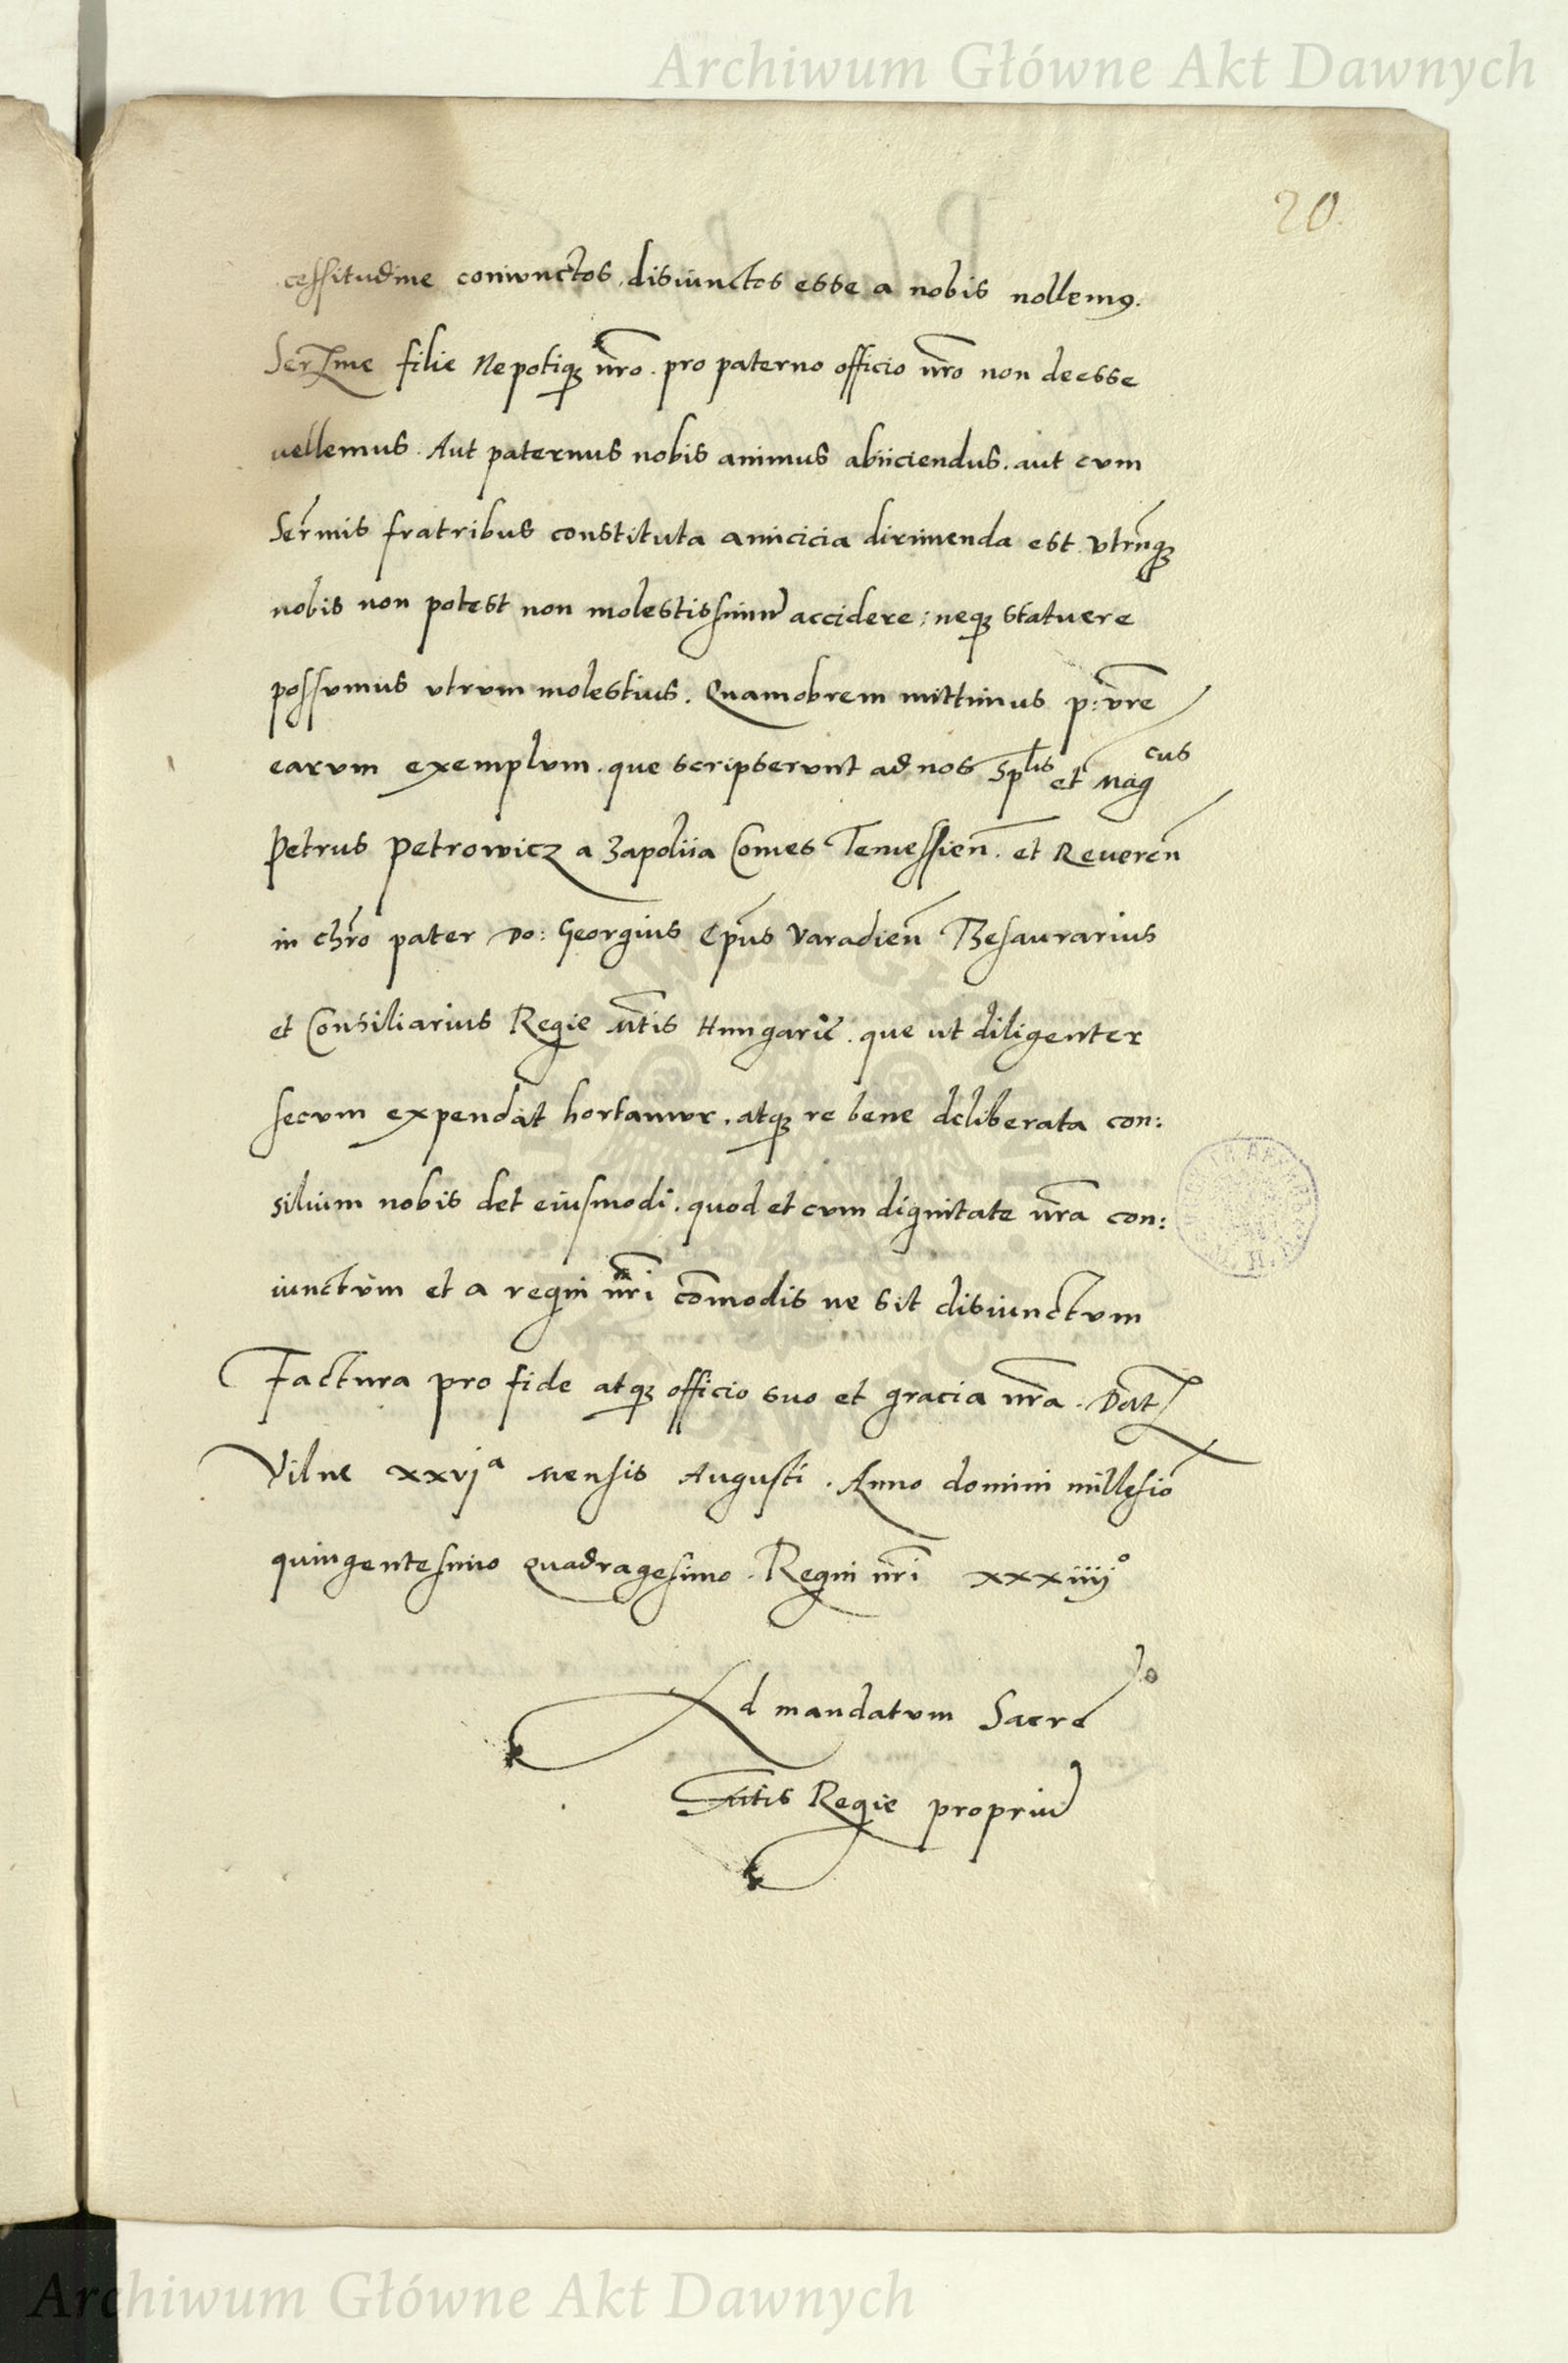 Archiwum Główne Akt Dawnych
20.
cessitudine coniunctos, disiunctos esse a nobis nollemꝰ.
Serᵐᵉ filie Nepotiqꝫ nr̄o. pro paterno officio nr̄o non deesse
uellemus. Aut paternus nobis animus abiiciendus. aut cum
Ser̄mis fratribus constituta amicicia dirimenda est. vtrūqꝫ
nobis non potest non molestissimū accidere: neqꝫ statuere
possumus utrum molestius. Quamobrem mittimus p: vr̄e
earum exemplum. que scripserunt ad nos Spˡⁱˢ et Mag
cus
Petrus Petrowicz a Zapoliia Comes Temessien̄. et Reueren̄
in chr̄o pater Do: Georgius Ep̄us Varadien̄ Thesaurarius
et Consiliarius Regie Mt̄is Hungarie. que ut diligenter
secum expendat hortamur. atqꝫ re bene deliberata con:
silium nobis det eiusmodi. quod et cum dignitate nr̄a con:
iunctum et a regni nr̄i com̄odis ne sit disiunctum
Factura pro fide atqꝫ officio suo et gracia nr̄a. Dat
Vilne xxvjᵃ mensis Augusti. Anno domini millesio
quingentesimo quadragesimo. Regni nr̄i xxxiiijᵒ
Ad mandatum Sacre
Mt̄is Regie propriū
Archiwum Główne Akt Dawnych